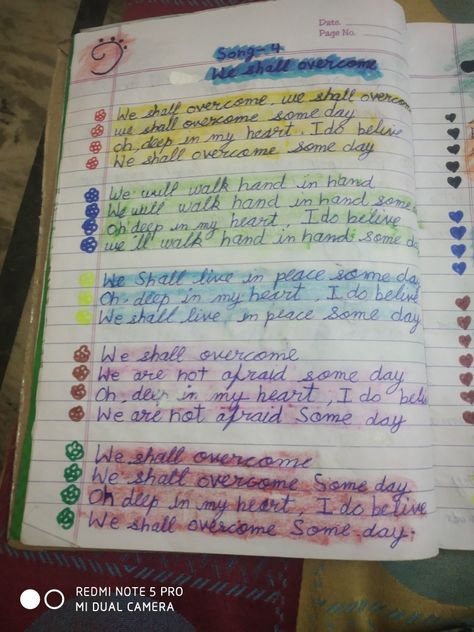 Date.
Page No.
Song-4
We shall overcome
We shall overcome, we shall overcome
we shall overcome some day
Oh, deep in my heart, I do belive
We shall overcome some day
We will walk hand in hand
We will walk hand in hand some
Oh deep in my heart, I do belive
we'll walk hand in hand some da
We Shall live in peace some day
Oh deep in my heart, I do belive
We shall live in peace Some day
We shall overcome
We are not afraid some day
Oh, deep in my heart, I do beli
We are not afraid Some day
We shall overcome
We shall overcome Some day
Oh deep in my heart, I do belive
We shall overcome Some day.
REDMI NOTE 5 PRO
MI DUAL CAMERA